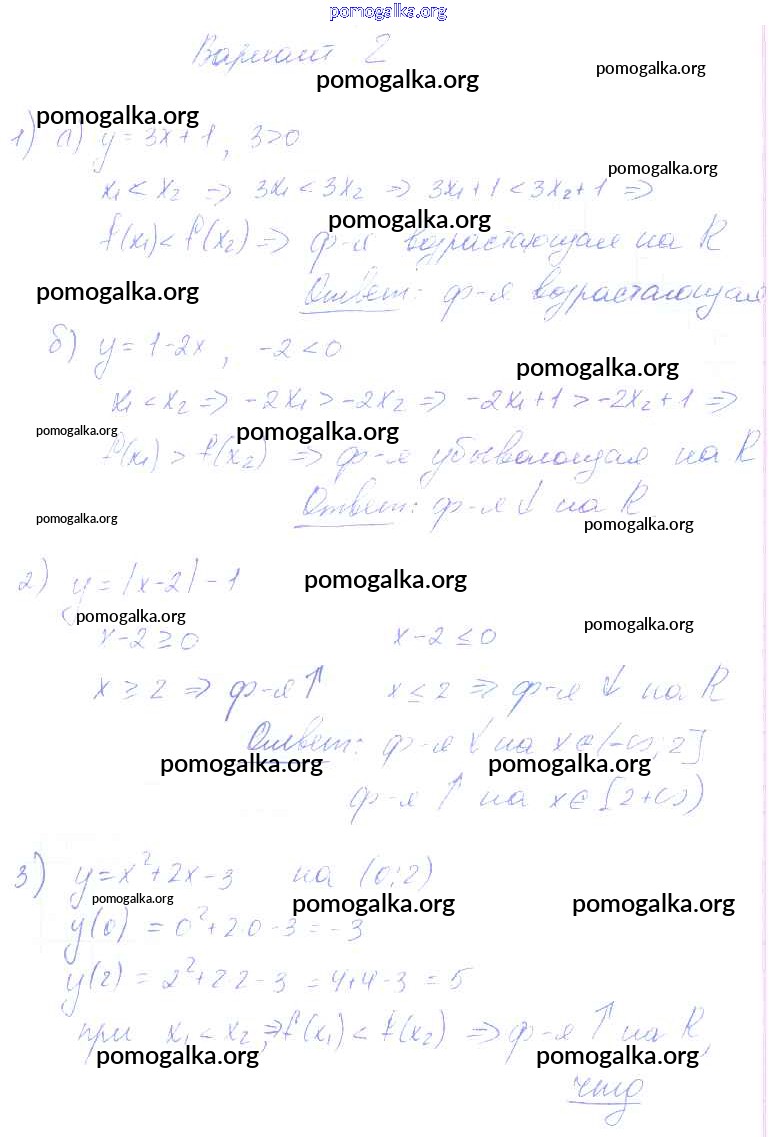 pomogalka.org
Вариант 2
pomogalka.org pomogalka.org
pomogalka.org
1) а) y = 3x + 1, 3>0
pomogalka.org
x₁ < x₂ ⇒ 3x₁ < 3x₂ ⇒ 3x₁ + 1 < 3x₂ + 1 ⇒
pomogalka.org
f(x₁) < f(x₂) ⇒ ф-я возрастающая на R
pomogalka.org
Ответ: ф-я возрастающая
б) y = 1-2x, -2<0
pomogalka.org
x₁ < x₂ ⇒ -2x₁ > -2x₂ ⇒ -2x₁+1 > -2x₂+1 ⇒
pomogalka.org pomogalka.org
f(x₁) > f(x₂) ⇒ ф-я убывающая на R
Ответ: ф-я ↓ на R
pomogalka.org pomogalka.org
2) y = |x-2| - 1
pomogalka.org
pomogalka.org pomogalka.org
x-2 ≥ 0 x-2 ≤ 0
x ≥ 2 ⇒ ф-я ↑ x ≤ 2 ⇒ ф-я ↓ на R
Ответ: ф-я ↓ на x∈(-∞; 2]
pomogalka.org pomogalka.org
ф-я ↑ на x∈[2+∞)
3) y = x² + 2x - 3 на (0;2)
pomogalka.org pomogalka.org pomogalka.org
y(0) = 0² + 2 0 - 3 = -3
y(2) = 2² + 2 2 - 3 = 4+4-3 = 5
при x₁ < x₂, ⇒ f(x₁) < f(x₂) ⇒ ф-я ↑ на R,
pomogalka.org pomogalka.org
чтд